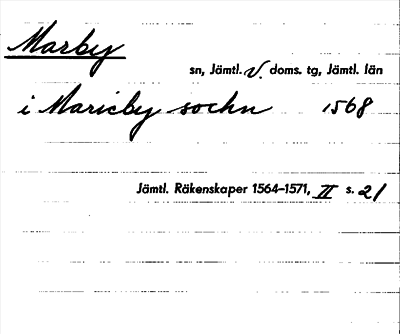 Marby
sn, Jämtl. V. doms. tg, Jämtl. län
i Maricby sochn 1568
Jämtl. Räkenskaper 1564–1571, II s. 21